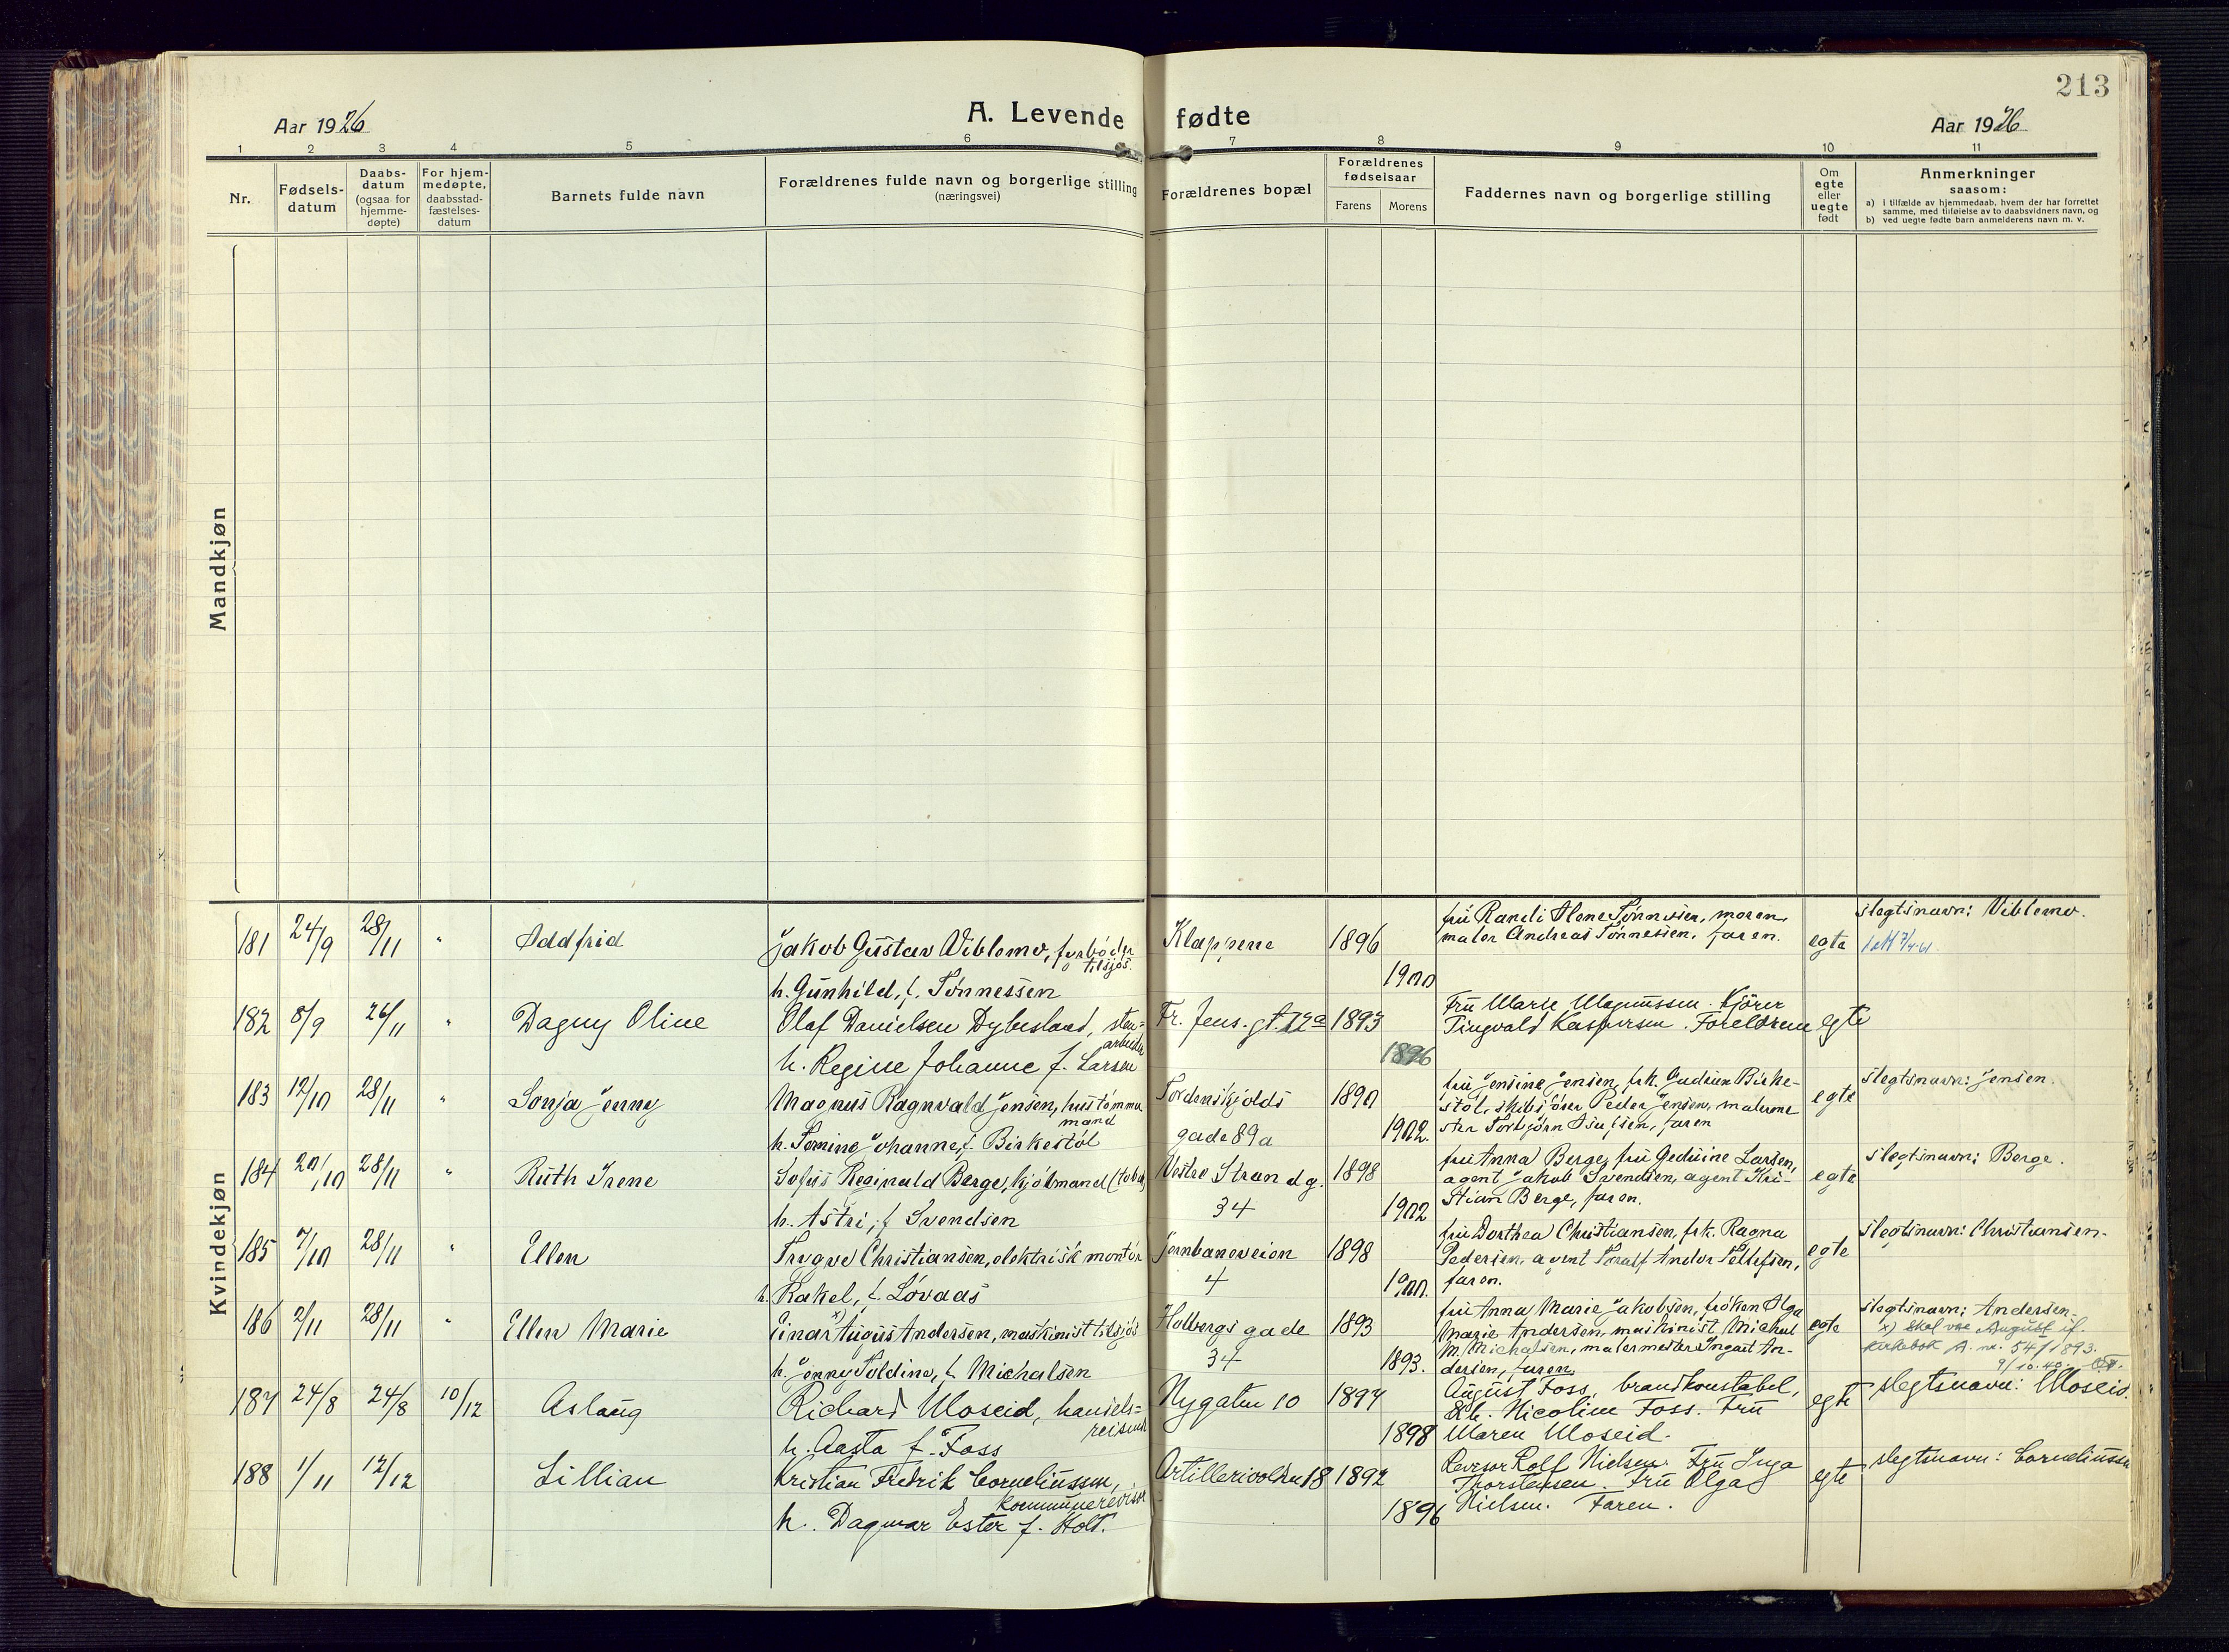 213
Aar 1926
A. Levende fødte
Aar 1926
1 2 3 4 5 6 7 8 9 10 11
Nr.
Fødsels-
datum
Daabs-
datum
(ogsaa for
hjemme-
døpte)
For hjem-
medøpte,
daabsstad-
fæstelses-
datum
Barnets fulde navn
Forældrenes fulde navn og borgerlige stilling
(næringsvei)
Forældrenes bopæl
Forældrenes
fødselsaar
Farens Morens
Faddernes navn og borgerlige stilling
Om
egte
eller
uegte
født
Anmerkninger
saasom:
a) i tilfælde av hjemmedaab, hvem der har forrettet
samme, med tilføielse av to daabsvidners navn, og
b) ved uegte fødte barn anmelderens navn m. v.
Mandkjøn
Kvindekjøn
181 24/9 28/11 " Oddfrid
Jakob Gustav Viblemo, fyrbøder
tilsjøs.
h. Gunhild, f. Tønnessen
Klappene
1896
1900
fru Randi Olene Tønnesen, moren,
maler Andreas Tønnesen, faren.
egte
slegtsnavn: Viblemo.
182 8/9 26/11 " Dagny Oline
Olaf Danielsen Dybesland, sten-
arbeider
h. Regine Johanne f. Larsen
Fr. Jens. gt. 72a
1893
1896
Fru Marie Magnussen. Kjører
Tingvald Kaspersen. Foreldrene
egte
183 12/10 28/11 " Sonja Jenny
Magnus Ragnvald Jensen, hustømmer
mand
h. Tomine Johanne, f. Birkestøl
Tordenskjolds
gade 89a
1890
1902.
fru Jensine Jensen, frk. Gudrun Birke-
støl, skibsfører Peder Jensen, malerme
ster Torbjørn Osufsen, faren
egte
slegtsnavn: Jensen.
184 20/10 28/11 " Ruth Irene
Sofus Reginald Berge, kjøbmand (tobak)
h. Astri, f Svendsen
Vestre Strandg.
34
1898
1902
fru Anna Berge, fru Geduine Larsen,
agent Jakob Svendsen, agent Kri-
stian Berge, faren.
egte
slegtsnavn: Berge.
185 7/10 28/11 " Ellen
Trygve Christiansen, elektrisk montør
h. Rakel, f. Løvaas
Jernbaneveien
4
1898
1900.
fru Dorthea Christiansen, frk. Ragna
Pedersen, agent Toralf Andor Tellefsen,
faren.
egte
slegtsnavn: Christiansen.
186 2/11 28/11 " Ellen Marie
Einar x) Augus Andersen, maskinist tilsjøs
h. Jenny Soldine, f. Michalsen
Holbergs gade
34
1893
1893.
fru Anna Marie Jakobsen, frøken Olga
Marie Andersen, maskinist Michael
M. Michalsen, malermester Ingart An-
dersen, faren.
egte
slegtsnavn: Andersen.
x) skal vre August if.
kirkebok A. nr. 54/1893.
9/10.40.
187 24/8 24/8 10/12 Aslaug
Richard Moseid, handels-
reisende
h. Aasta f. Foss
Nygaten 10
1897
1898
August Foss, brandkonstabel,
Nicoline Foss. Fru
Maren Moseid.
egte
slegtsnavn: Moseid.
188 1/11 12/12 Lillian
Kristian Fredrik Corneliussen,
Kommunerevisor
h. Dagmar Ester f. Holt.
Artillerivolden 18
1892
1896
Revisor Rolf Nielsen. Fru Inga
Thorstensen. Fru Olga
Nielsen. Faren.
egte
slegtsnavn: Corneliussen